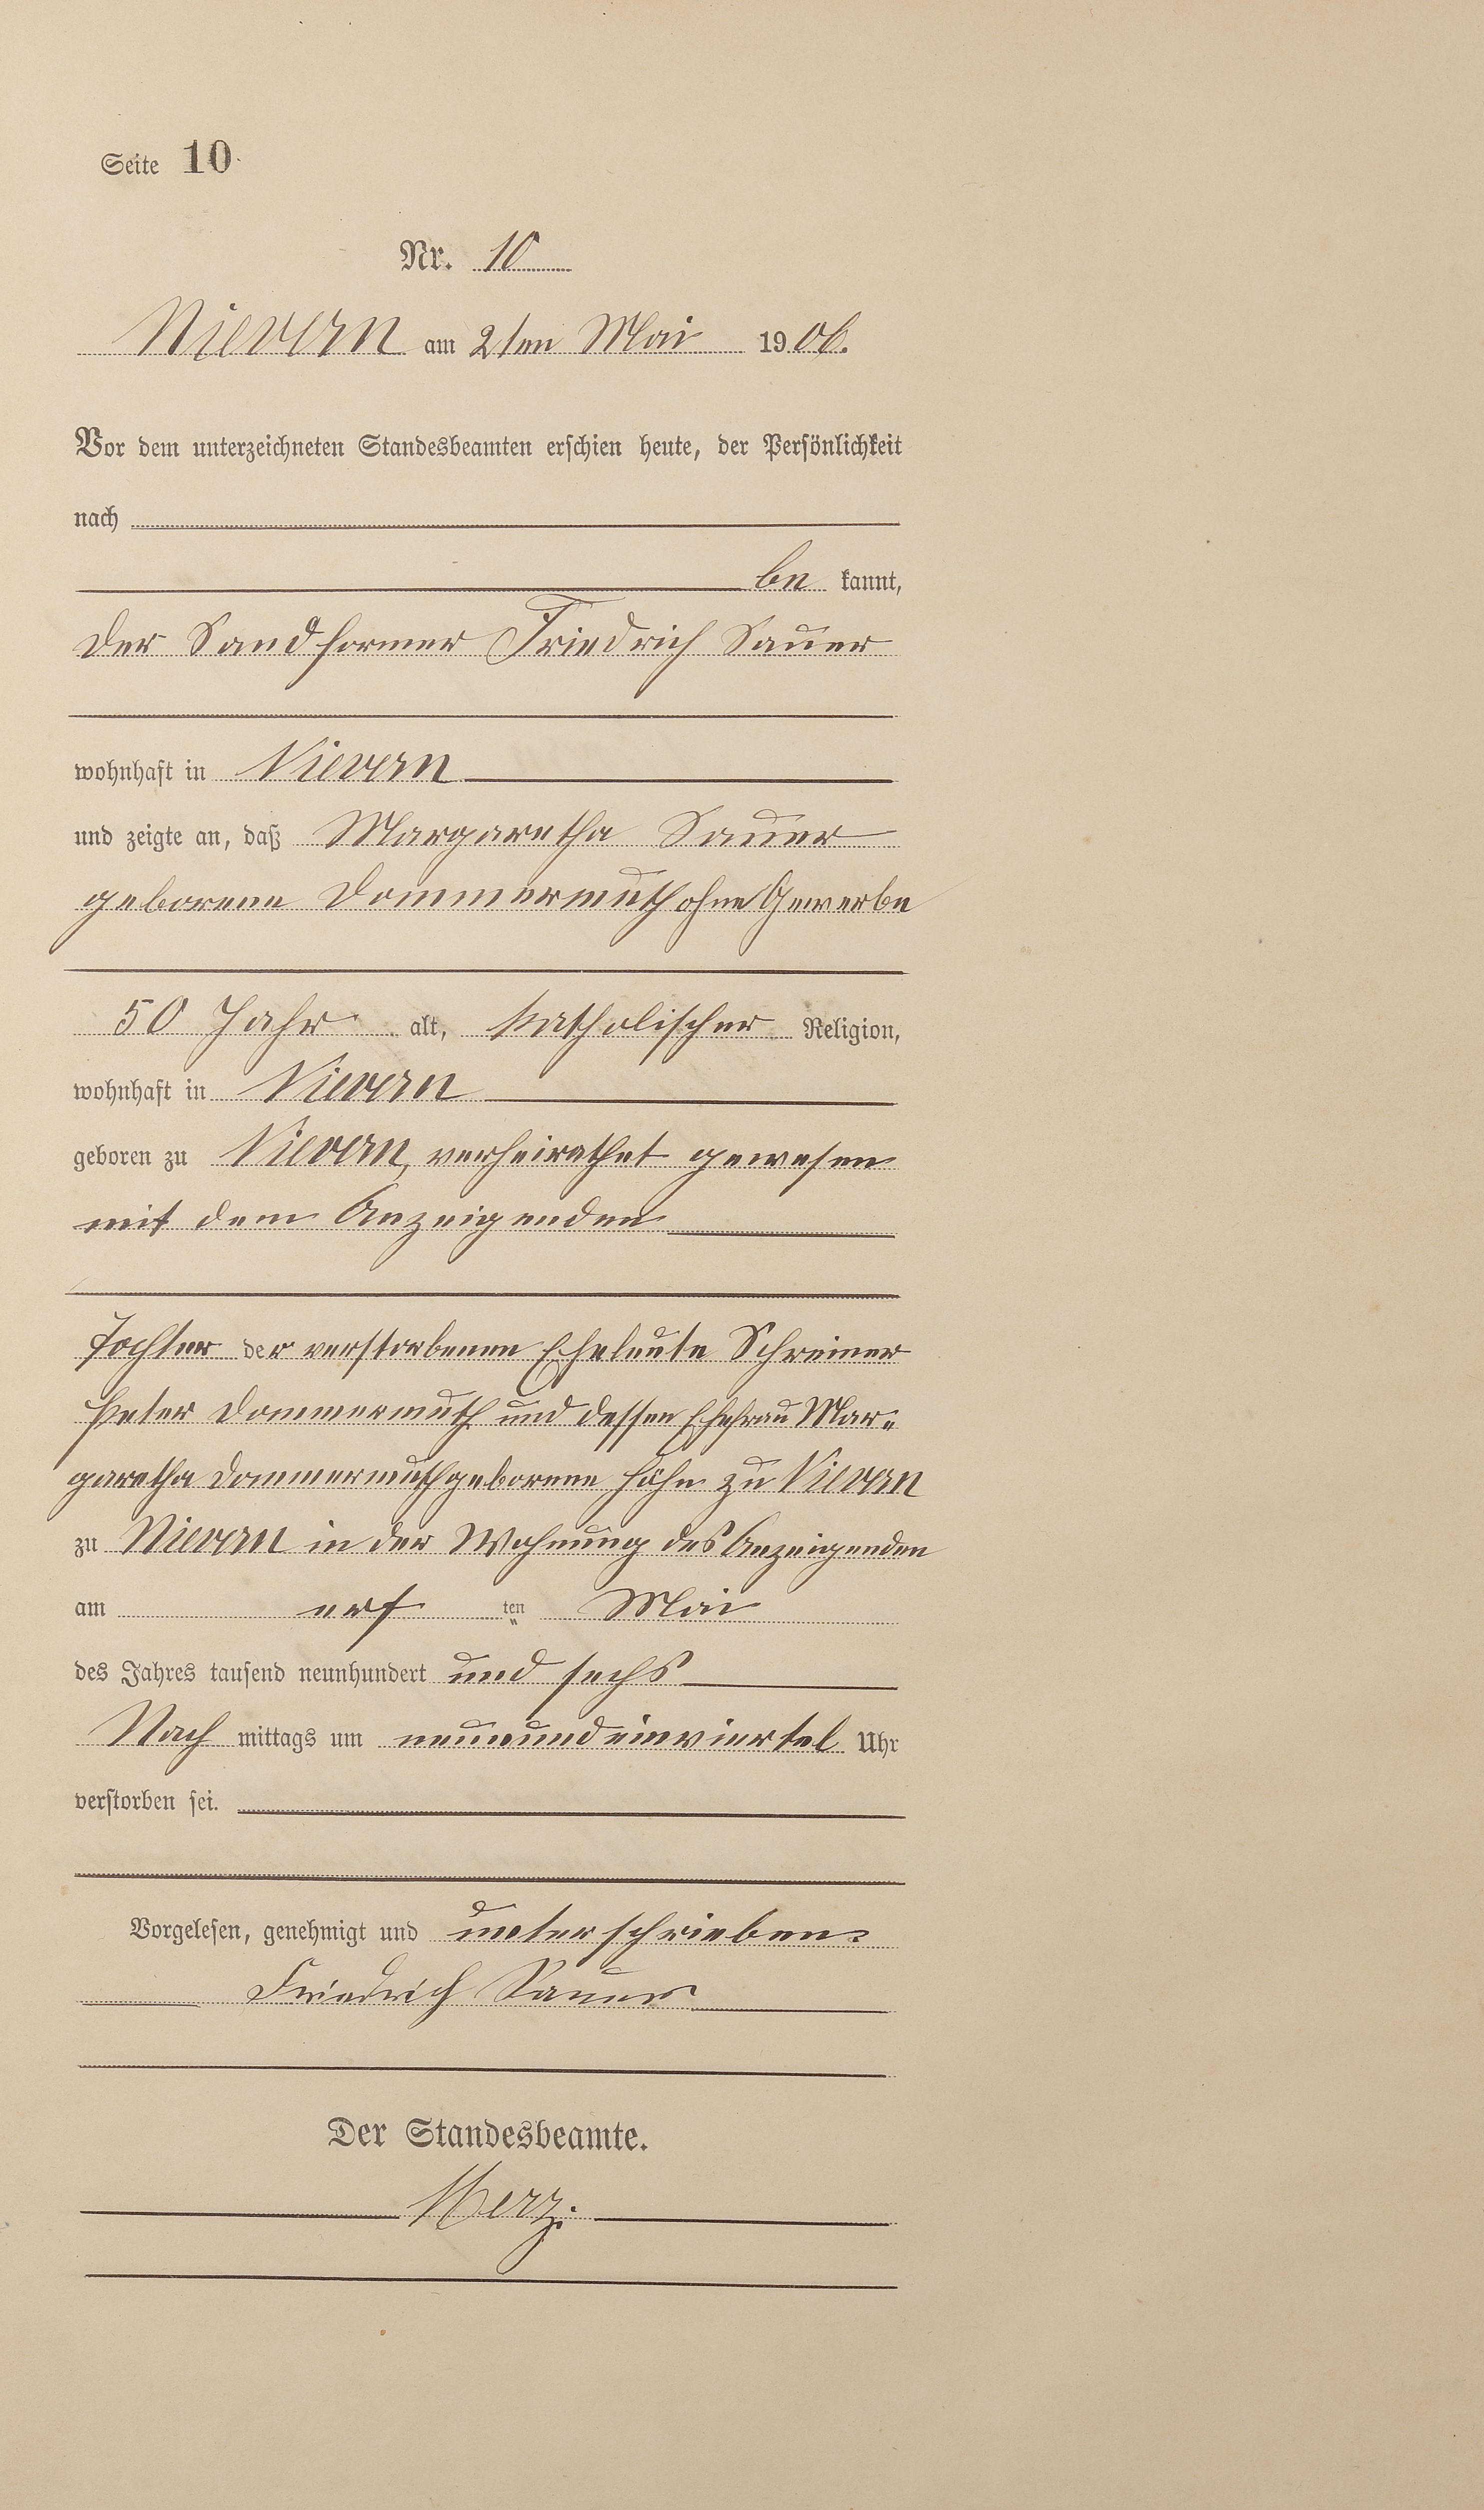 Seite 10.
Nr. 10
Nievern am 2ten Mai 1906.
Vor dem unterzeichneten Standesbeamten erschien heute, der Persönlichkeit
nach
be kannt,
der Sandformer Friedrich Sauer
wohnhaft in Nievern
und zeigte an, daß Margaretha Sauer
geborene Dommermuth ohne Gewerbe
50 Jahr alt, katholischer Religion,
wohnhaft in Nievern
geboren zu Nievern, verheirathet gewesen
mit dem Anzeigenden
Tochter der verstorbenen Eheleute Schreiner
Peter Dommermuth und dessen Ehefrau Mar=
garetha Dommermuth geborene Höhn zu Nievern
zu Nievern in der Wohnung des Anzeigenden
am ers ten Mai
des Jahres tausend neunhundert und sechs
Nach mittags um neunundeinviertel Uhr
verstorben sei.
Vorgelesen, genehmigt und unterschrieben.
Friedrich Sauer
Der Standesbeamte.
Merz.